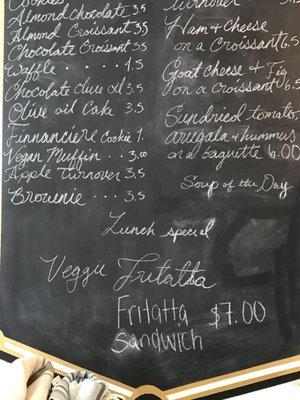 Cookies
Almond chocolate 3.5
Almond Croissant 3.5
Chocolate Croissant 3.5
Waffle . . . . 1.5
Chocolate olive oil 3.5
Olive oil Cake 3.5
Finnanciere Cookie 1.
Vegan Muffin . . . 3.00
Apple Turnover 3.5
Brownie . . . . 3.5
Turnover
Ham & Cheese
on a Croissant 6.5
Goat cheese & Fig
on a Croissant 6.5
Sundried tomato,
arugala & hummus
on a baguette 6.00
Soup of the Day
Lunch special
Veggie Fritatta
Fritatta $7.00
Sandwich